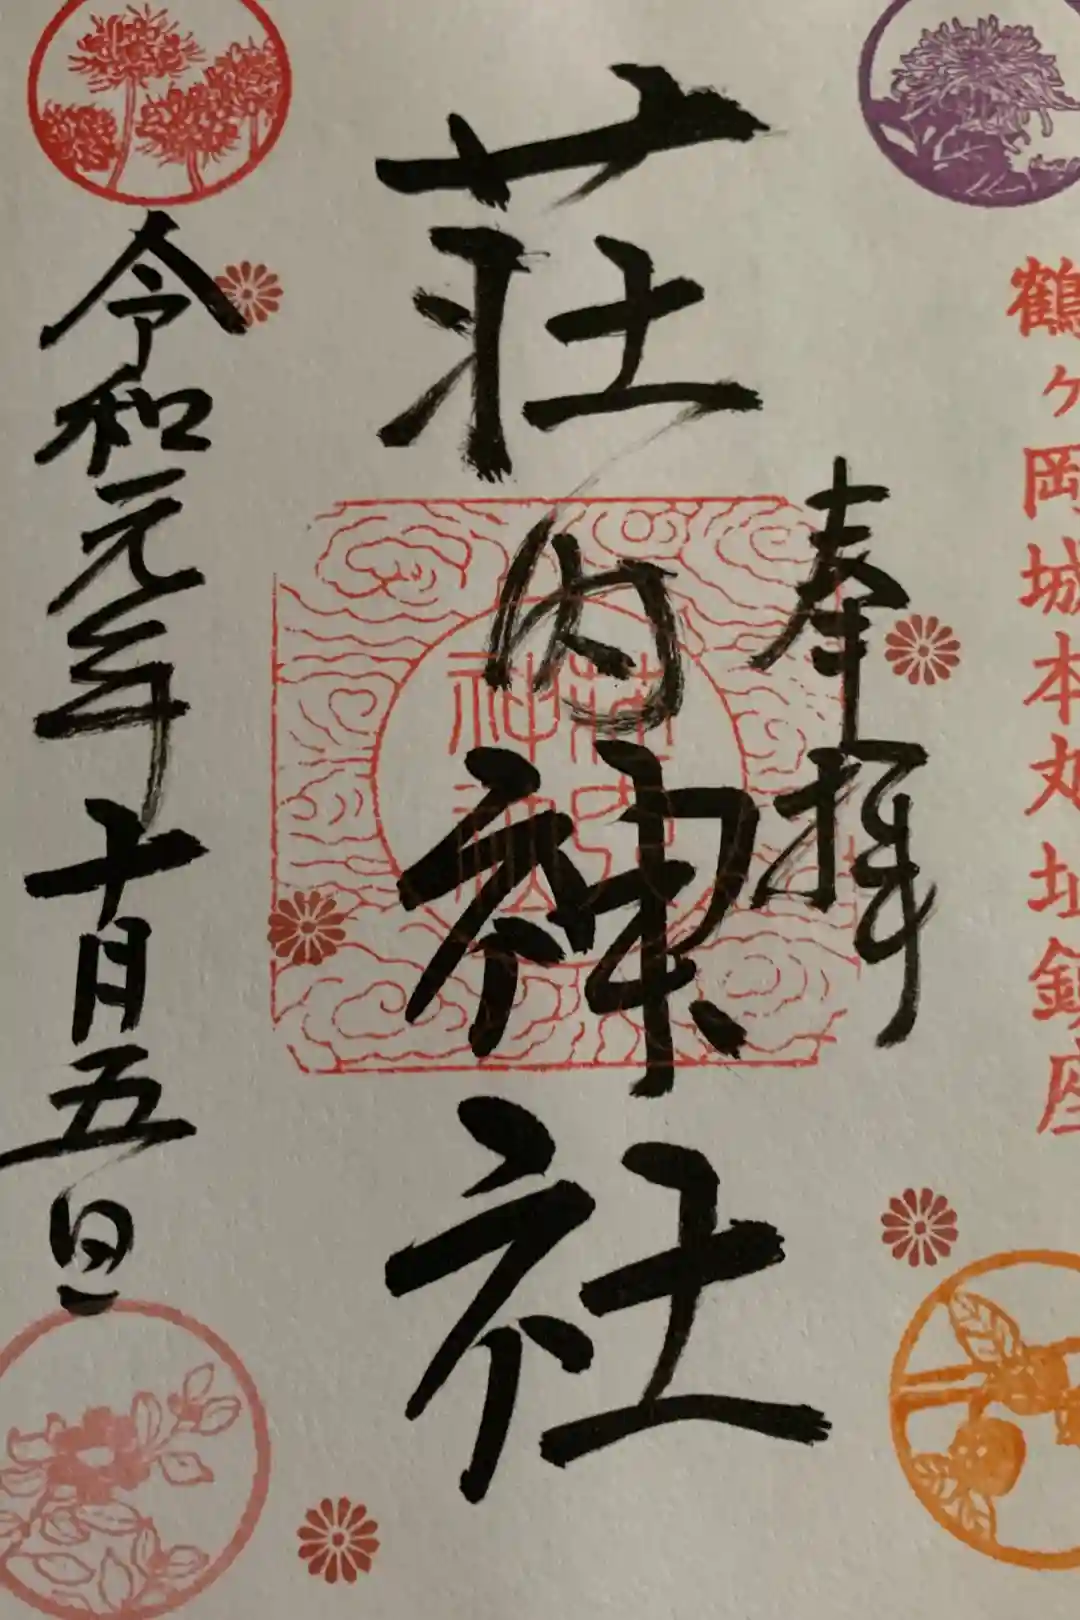 鶴ヶ岡城本丸址鎮座
奉拝
荘内神社
荘内
神社
令和元年十月五日